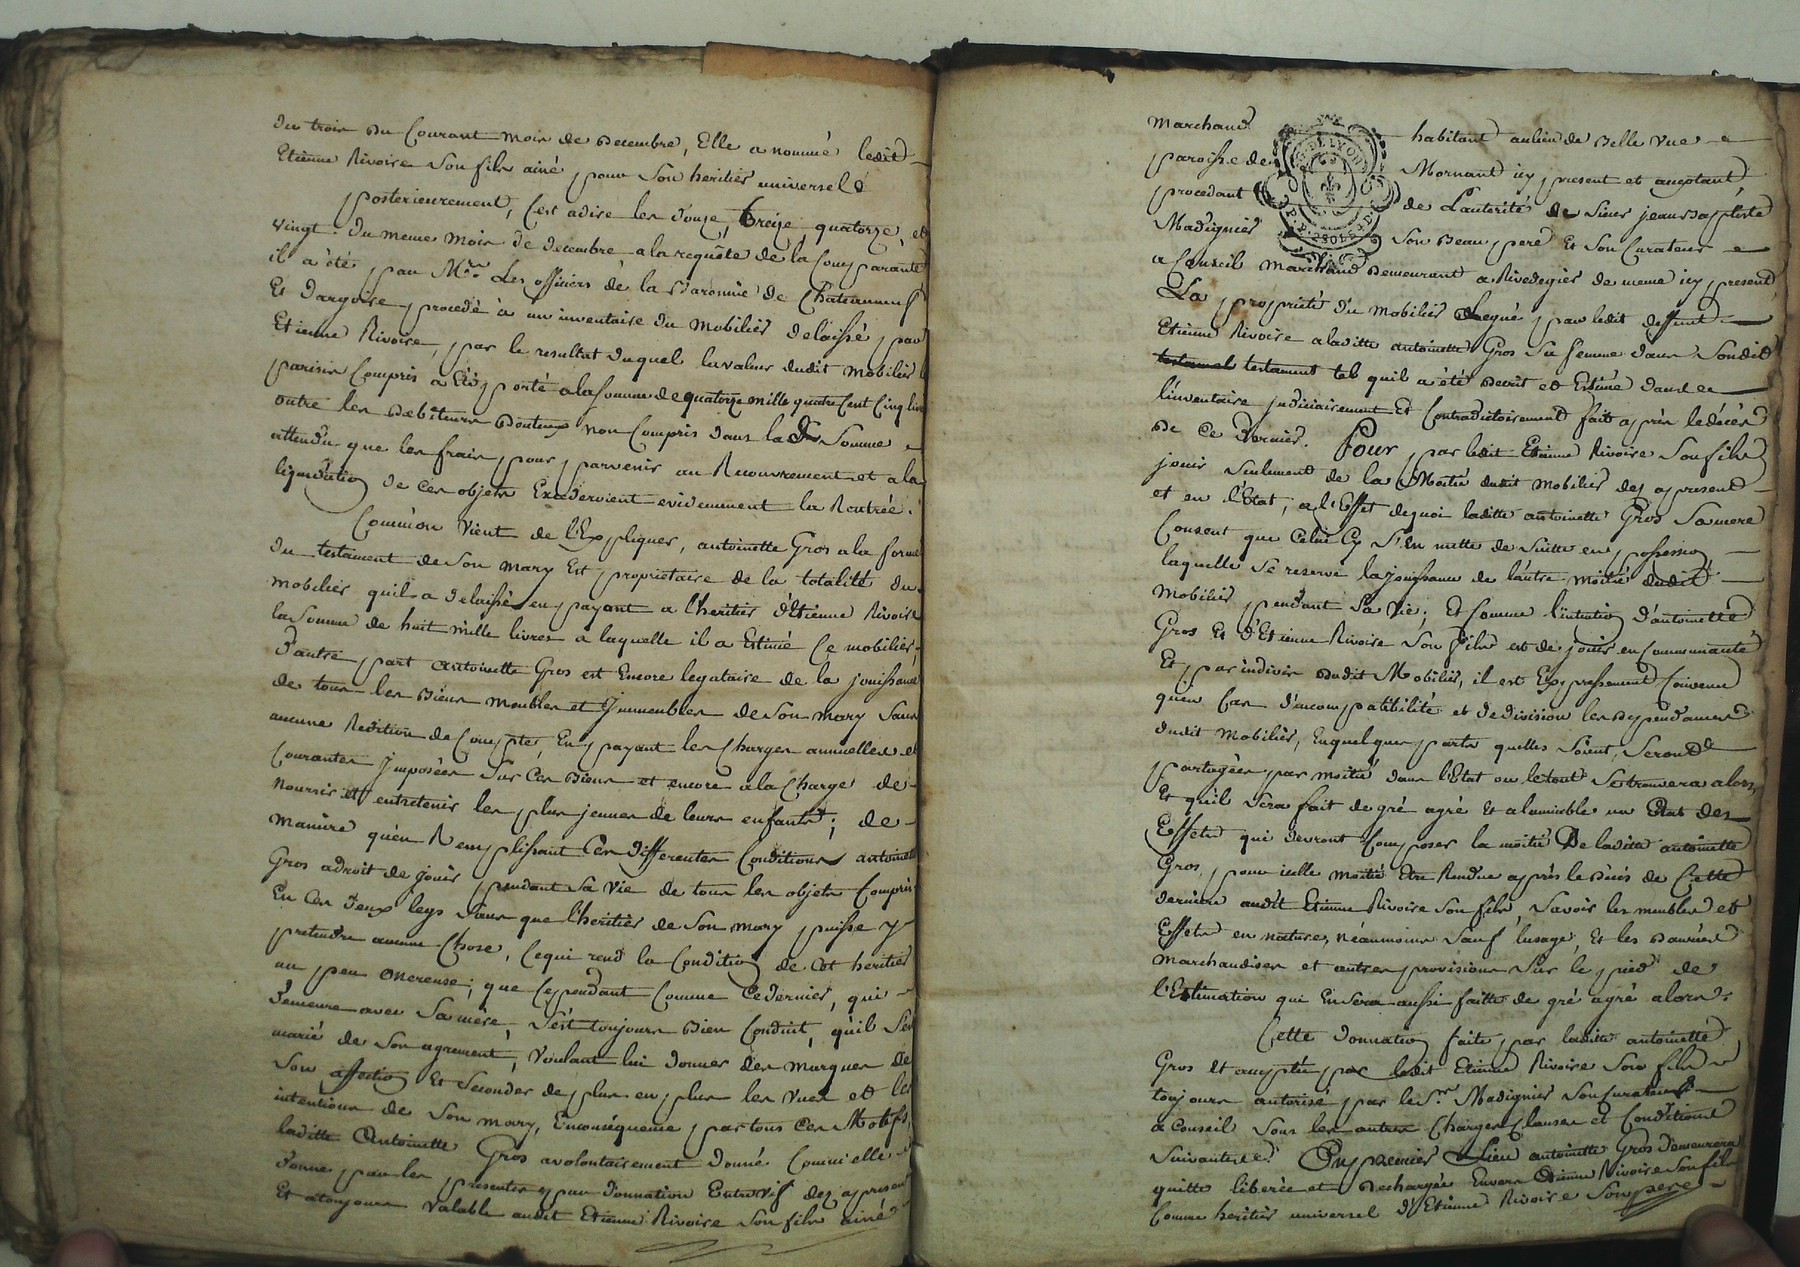 du trois du Courant mois de Decembre, Elle a nommé ledit
Etienne Rivoire Son fils ainé, pour Son heritier universel
posterieurement, c'est adire les douze, treize quatorze, et
vingt du meme mois de decembre, a la requête de la Comparante
il a été, par Mrs. Les officiers de la Baronnie de Chateauneuf
Et Dargoire, procedé à un inventaire du Mobilier delaissé, par
Etienne Rivoire, par le resultat duquel la valeur dudit mobilier
parisis Compris a Eté porté a la Somme de quatorze mille quatre Cent Cinq
outre les Debiteurs Douteux non Compris dans lad. Somme
attendu que les frais, pour parvenir au Recouvrement et a la
liquidation de Ces objets Excederoient evidemment la Rentrée.
Comme on vient de l'Expliquer, antoinette Gros a la forme
du testament de Son mary Est, proprietaire de la totalité du
mobilier quil a delaissé en payant a l'heritier d'Etienne Rivoire
la Somme de huit mille livres a laquelle il a Estimé Ce mobilier;
D'autre, part Antoinette Gros est Encore legataire de la jouissance
de tous les Biens Meubles et Jmmeubles de Son mary Sans
aucune Redition de Compte, En payant les Charges annuelles et
Courantes Jmposées Sur Ces Biens et encore a la Charge de
Nourrir et entretenir les plus jeunes de leurs enfants; de
Maniere qu'en Remplissant Ces differentes Conditions antoinette
Gros a droit de jouir pendant Sa vie de tous les objets Compris
En Ces deux legs Sans que l'heritier de Son mary puisse y
pretendre aucune Chose, Ce qui rend la Condition de Cet heritier
un peu onereuse; que Cependant Comme Ce dernier, qui
Demeure avec Sa mere, S'est toujours Bien Conduit, qu'il S'est
marié de Son agrement, Voulant lui donner des marques de
Son affection Et Seconder de plus en plus les vues et les
intentions de Son mary, Enconséquence, par tous Ces Motifs,
laditte Antoinette Gros a volontairement donné Comme elle
donne, par les presentes par Donnation Entrevifs dez apresent
Et a toujours Valable audit Etienne Rivoire Son fils ainé
Marchand habitant au lieu de Belle Vue
paroisse de Mornant icy present et acceptant,
procedant de L'autorité de Sieur jean Baptiste
Madignier Son Beau pere Et Son Curateur
a Conseil Marchand Demeurant a Rivedegier de meme icy present
La proprieté du Mobilier Legué par ledit deffunt
Etienne Rivoire a laditte antoinette Gros Sa femme dans Sondit
testament tel quil a été Decrit et Estimé dans
l'inventaire judiciairement Et Contradictoirement fait après le décès
De Ce Dernier. Pour, par ledit Etienne Rivoire Son fils
jouir Seulement de la Moitié dudit Mobilier dez apresent
et en l'Etat; a l'Effet de quoi laditte antoinette Gros Sa mere
Consent que Celui Cy S'En mette de Suitte en possession
laquelle Se reserve la jouissance de l'autre moitié dudit
Mobilier, pendant Sa vie; Et Comme l'intention d'antoinette
Gros Et d'Etienne Rivoire Son fils est de jouir en Communauté
Et par indivis dudit Mobilier, il est Expressement Convenu
qu'en Cas d'incompatibilité et de division les Dependances
dudit Mobilier, En quelques parts quelles Soient, Seront
partagées par moitié dans l'Etat ou le tout Se trouvera alors
Et qu'il Sera fait de gré agré Et a lamiable un Etat des
Effets qui devront Composer la moitié De laditte antoinette
Gros, pour icelle moitié Etre Rendue après le Décès de Cette
derniere audit Etienne Rivoire Son fils, Savoir les meubles et
Effets en nature, néanmoins Sauf lusage, Et les Danrées
Marchandises et autres provisions Sur le pied de
l'Estimation qui En Sera aussi faitte de gré agré alors.
Cette Donnation faite par laditte antoinette
Gros Et acceptée par ledit Etienne Rivoire Son fils
toujours autorisé par le Sr. Madignier Son Curateur
a Conseil Sous les autres Charges Clauses et Conditions
Suivantes. En premier Lieu antoinette Gros Demeurera
quitte liberée et Dechargée Envers Etienne Rivoire Son fils
Comme heritier universel d'Etienne Rivoire Son pere